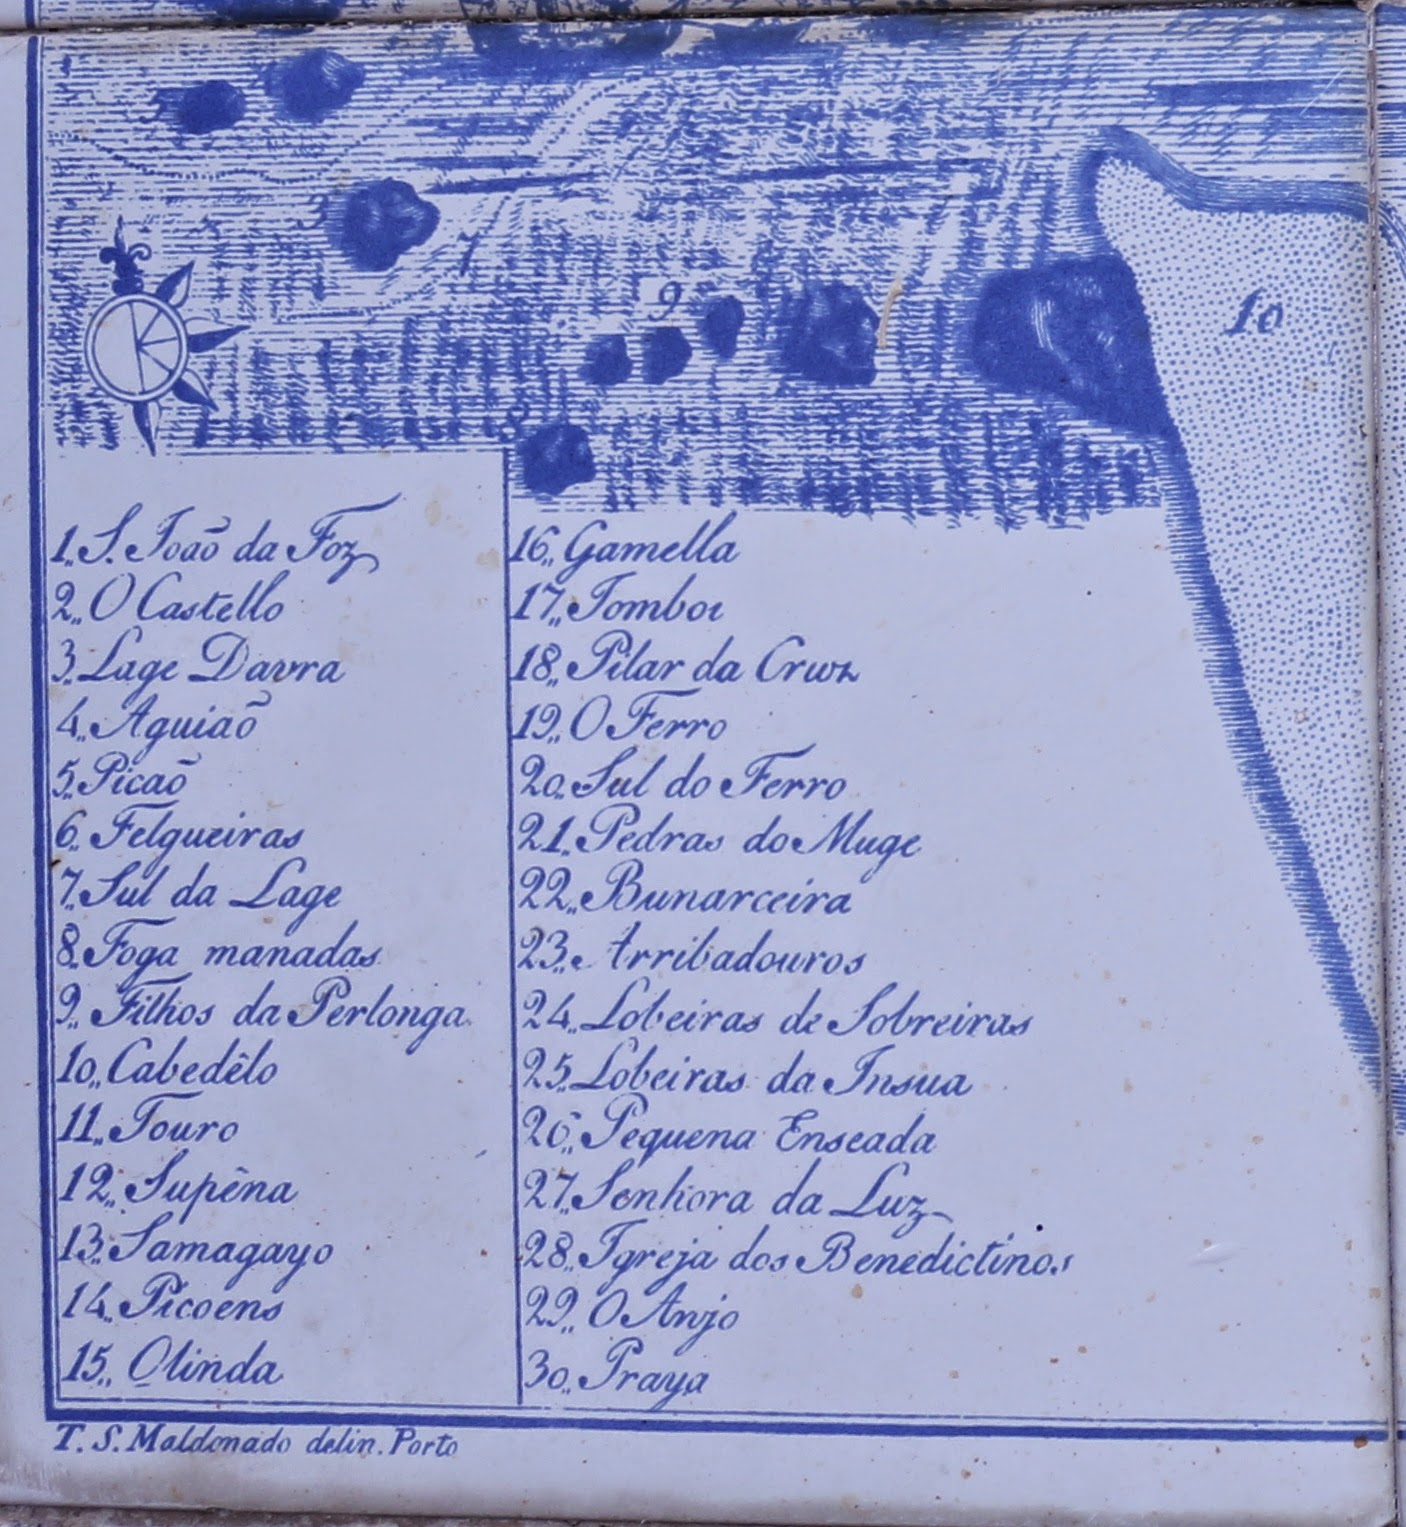 3
7
9
10
8
1,, S. Joaõ da Foz
2,, O Castello
3,, Lage Davra
4,, Aguiaõ
5,, Picaõ
6,, Felgueiras
7,, Sul da Lage
8,, Foga manadas
9,, Filhos da Perlonga
10,, Cabedêlo
11,, Touro
12,, Supêna
13,, Samagayo
14,, Picoens
15,, Olinda
16,, Gamella
17,,
18,, Pilar da Cruz
19,, O Ferro
20,, Sul do Ferro
21,, Pedras do Muge
22,, Bunarceira
23,, Arribadouros
24,, Lobeiras de Sobreiras
25,, Lobeiras da Insua
26,, Pequena Enseada
27,, Senhora da Luz
28,, Igreja dos Benedictinos
29,, O Anjo
30,, Praya
T. S. Maldonado delin. Porto